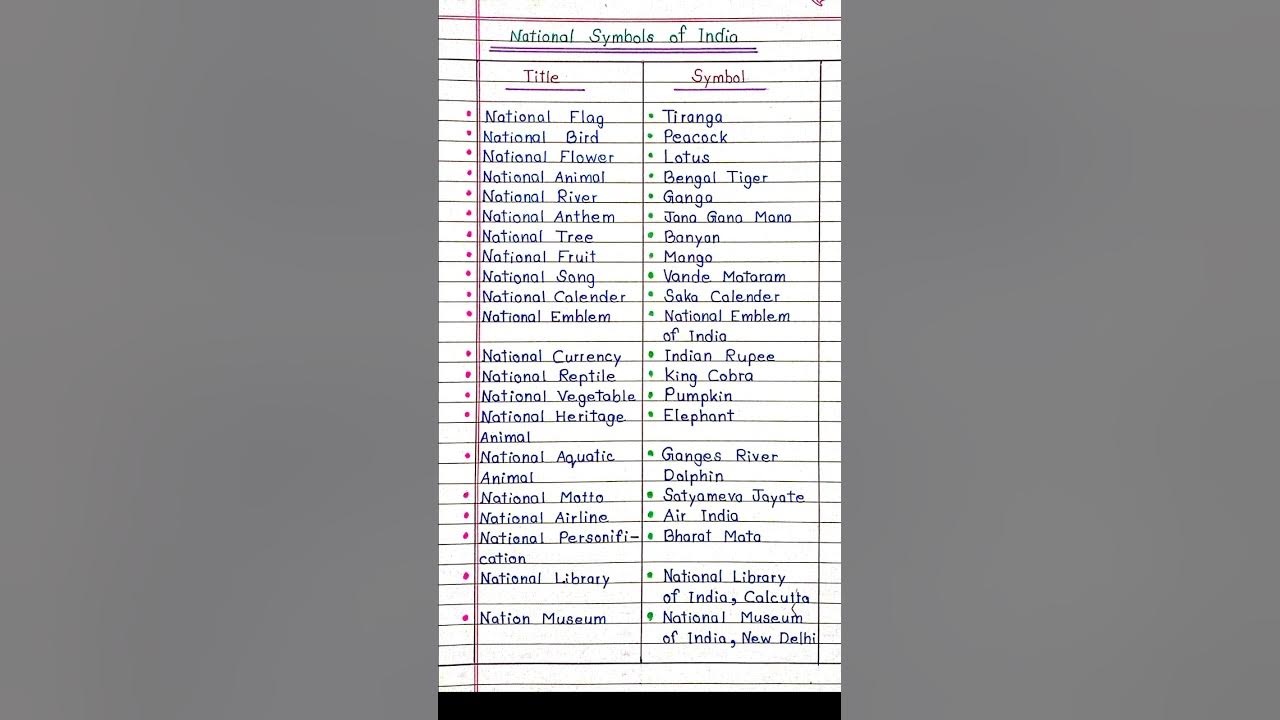 National Symbols of India
Title Symbol
• National Flag • Tiranga
• National Bird • Peacock
• National Flower • Lotus
• National Animal • Bengal Tiger
• National River • Ganga
• National Anthem • Jana Gana Mana
• National Tree • Banyan
• National Fruit • Mango
• National Song • Vande Mataram
• National Calender • Saka Calender
• National Emblem • National Emblem
of India
• National Currency • Indian Rupee
• National Reptile • King Cobra
• National Vegetable • Pumpkin
• National Heritage • Elephant
Animal
• National Aquatic • Ganges River
Animal Dolphin
• National Motto • Satyameva Jayate
• National Airline • Air India
• National Personifi- • Bharat Mata
cation
• National Library • National Library
of India, Calcutta
• Nation Museum • National Museum
of India, New Delhi